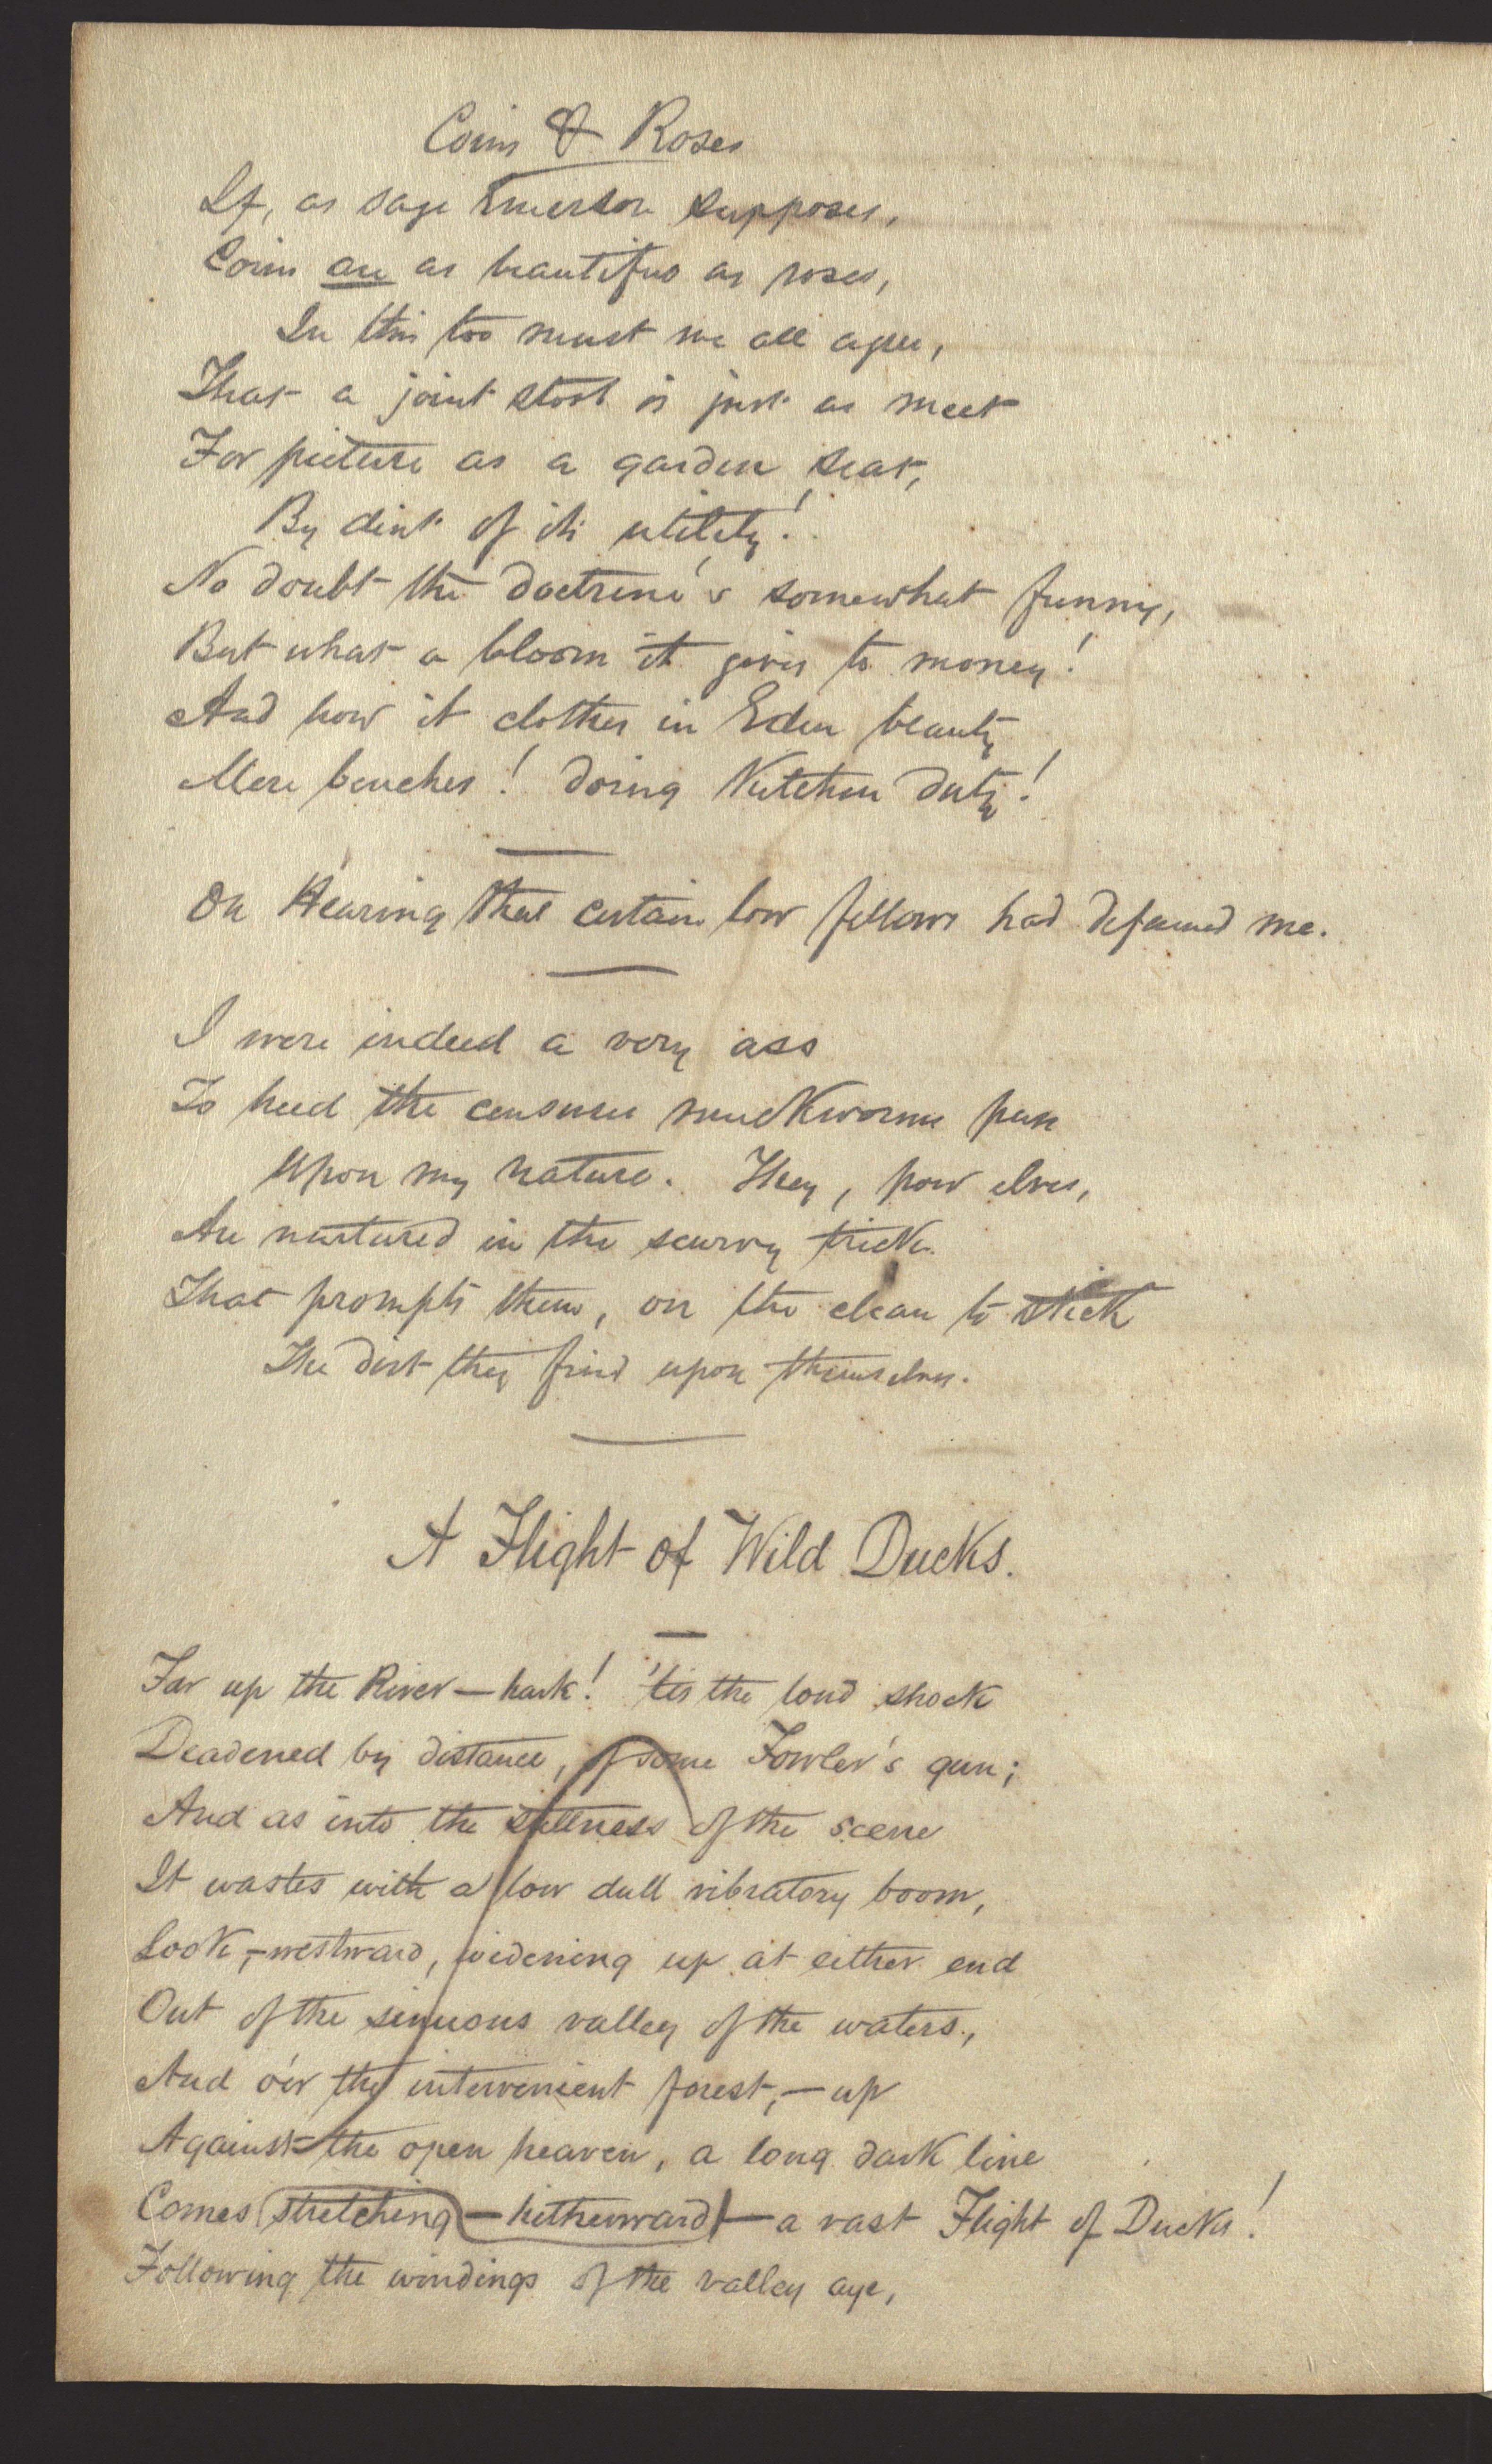 Coins & Roses
If, as sage Emerson supposes,
Coins are as beautiful as roses,
In this too must we all agree,
That a joint stool is just as meet
For picture as a garden seat,
By dint of its utility!
No doubt the doctrine's somewhat funny,
But what a bloom it gives to money!
And how it clothes in Eden beauty
Mere benches! doing Kitchen duty!
On Hearing that certain low fellows had defamed me.
I were indeed a very ass
To heed the censures muckworms pass
Upon my nature. They, poor elves,
Are nurtured in the scurvy trick
That prompts them, on the clean to stick
The dirt they find upon themselves.
A Flight of Wild Ducks.
Far up the River—hark! 'tis the loud shock
Deadened by distance, of some Fowler's gun;
And as into the stillness of the scene
It wastes with a low dull vibratory boom,
Look,—westward, widening up at either end
Out of the sinuous valley of the waters,
And o'er the intervenient forest,—up
Against the open heaven, a long dark line
Comes stretching—hitherward—a vast Flight of Ducks!
Following the windings of the valley aye,